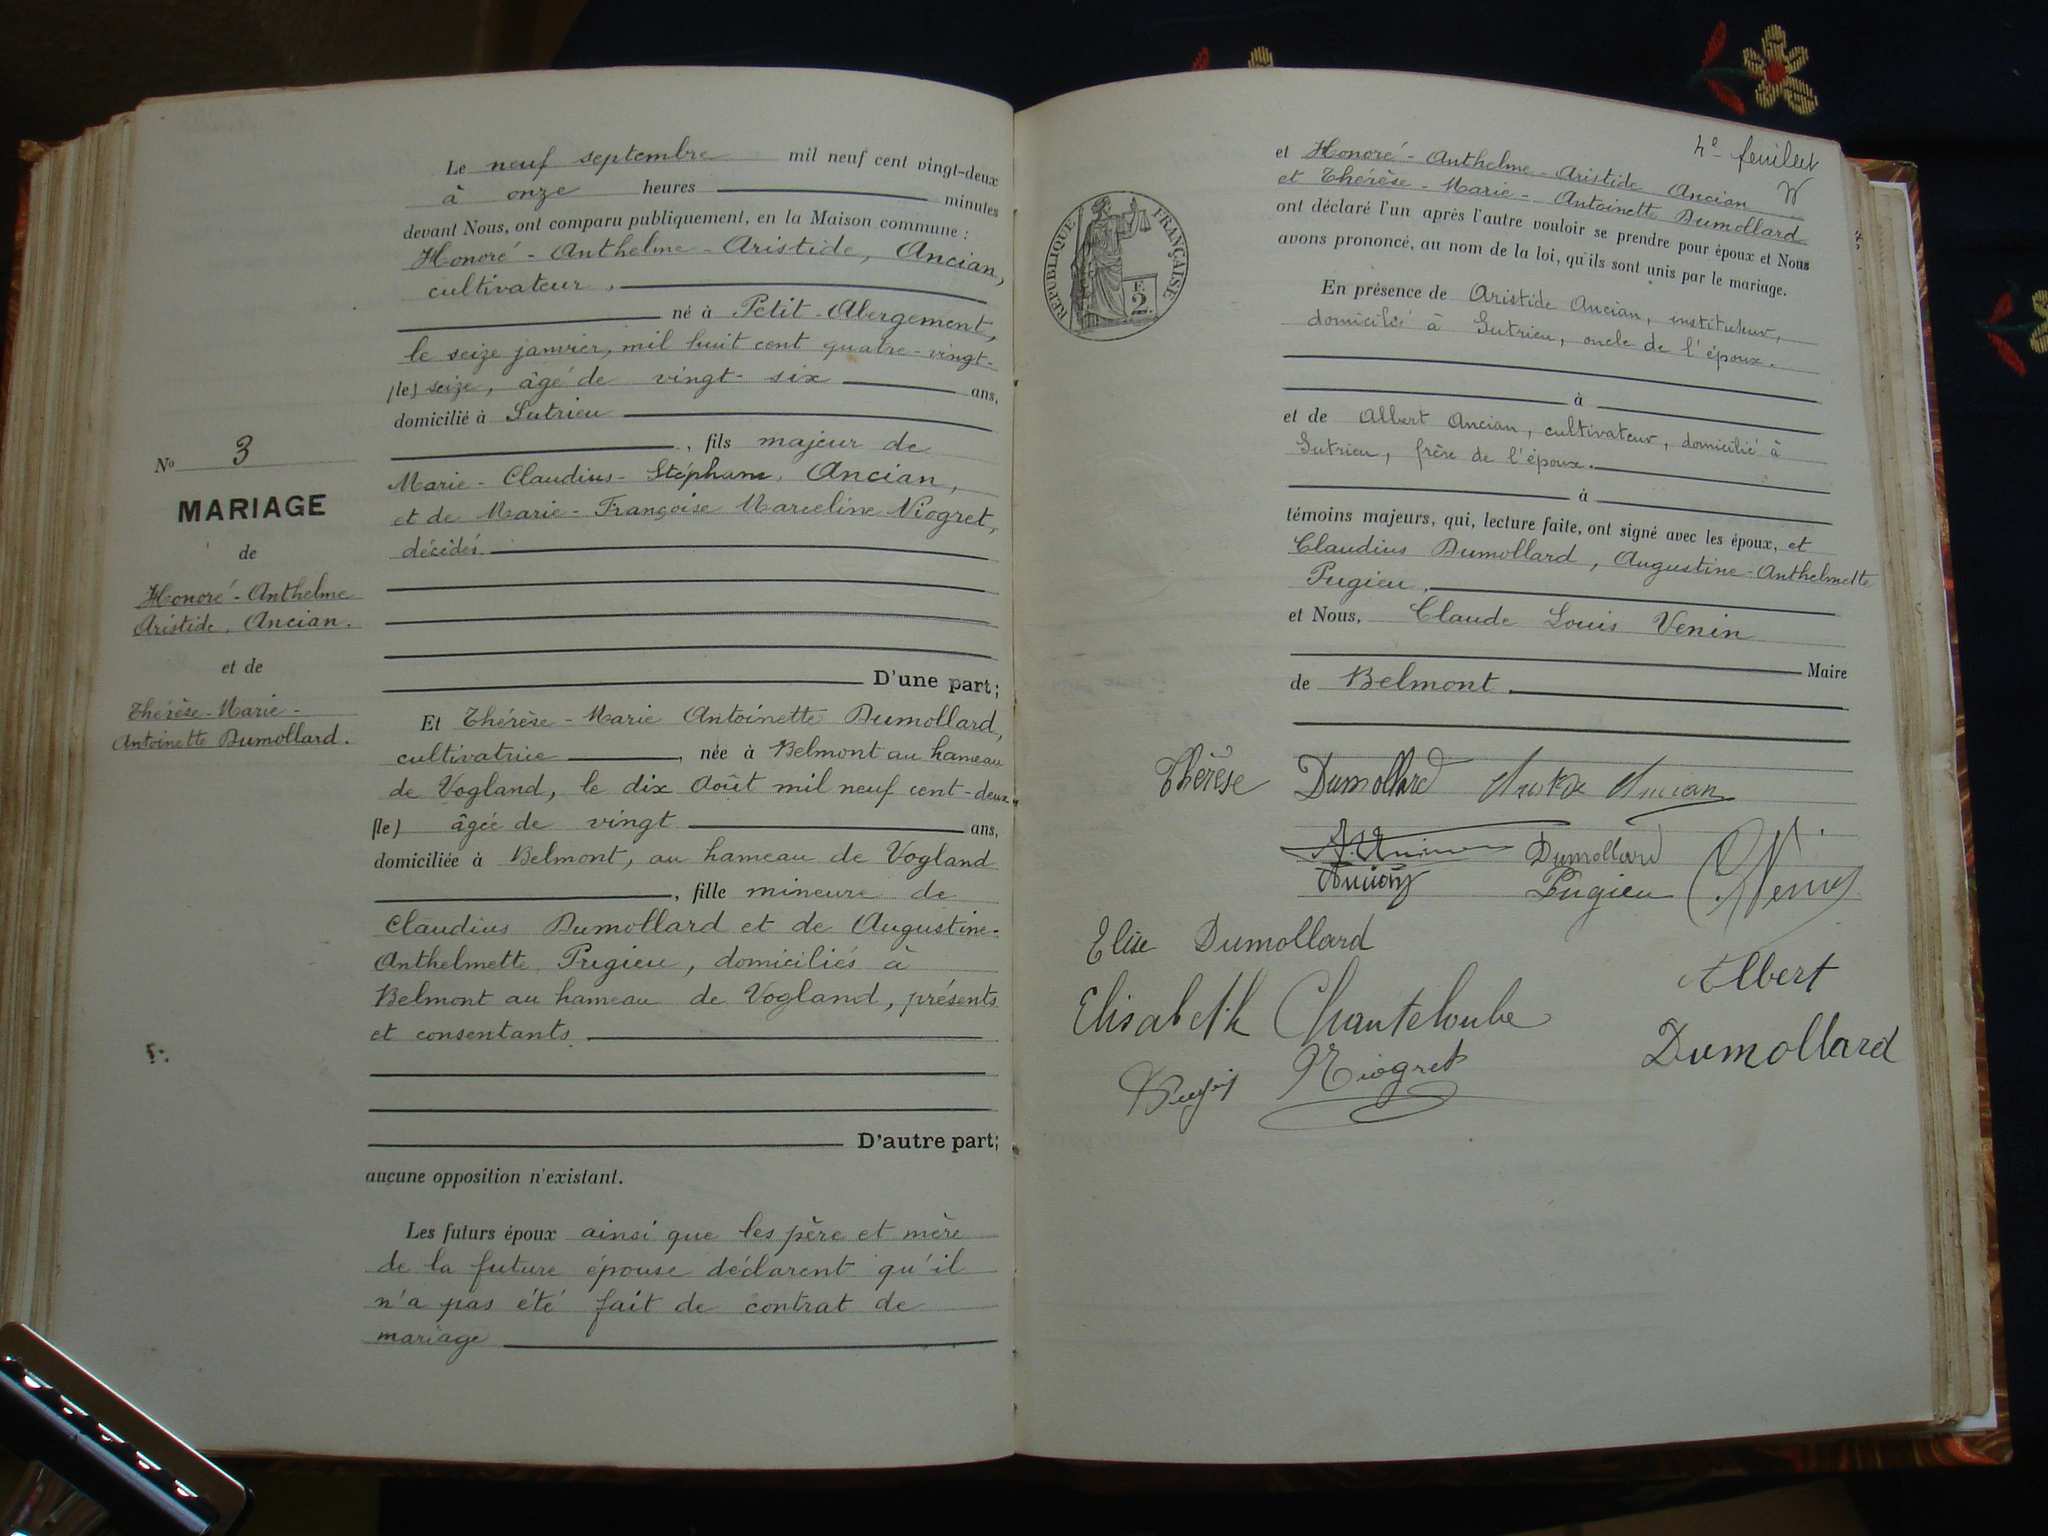 Le neuf septembre mil neuf cent vingt-deux
à onze heures minutes
devant Nous, ont comparu publiquement, en la Maison commune :
Honoré - Anthelme - Aristide, Ancian,
cultivateur,
né à Petit-Abergement,
le seize janvier, mil huit cent quatre-vingt-
(le) seize, âgé de vingt-six ans,
domicilié à Sutrieu
, fils majeur de
Marie-Claudius-Stéphane, Ancian,
et de Marie-Françoise Marceline Niogret,
décédés
D'une part;
Et Thérèse-Marie Antoinette Dumollard,
cultivatrice, née à Belmont au hameau
de Vogland, le dix Août mil neuf cent-deux
(le) âgée de vingt ans,
domiciliée à Belmont, au hameau de Vogland
, fille mineure de
Claudius Dumollard et de Augustine-
Anthelmette Pugieu, domiciliés à
Belmont au hameau de Vogland, présents
et consentants
D'autre part;
aucune opposition n'existant.
Les futurs époux ainsi que les père et mère
de la future épouse déclarent qu'il
n'a pas été fait de contrat de
mariage
No 3
MARIAGE
de
Honoré-Anthelme
Aristide, Ancian.
et de
Thérèse-Marie-
Antoinette Dumollard.
4e feuillet
et Honoré-Anthelme-Aristide Ancian
et Thérèse-Marie-Antoinette Dumollard
ont déclaré l'un après l'autre vouloir se prendre pour époux et Nous
avons prononcé, au nom de la loi, qu'ils sont unis par le mariage.
En présence de Aristide Ancian, instituteur,
domicilié à Sutrieu, oncle de l'époux.
à
et de Albert Ancian, cultivateur, domicilié à
Sutrieu, frère de l'époux.
à
témoins majeurs, qui, lecture faite, ont signé avec les époux, et
Claudius Dumollard, Augustine-Anthelmette
Pugieu,
et Nous, Claude Louis Venin
Maire
de Belmont
RÉPUBLIQUE FRANÇAISE
2
Thérèse Dumollard Aristide Ancian
Ancian Dumollard
Pugieu Venin
Elise Dumollard
Albert
Elisabeth Chanteloube
Dumollard
Niogret